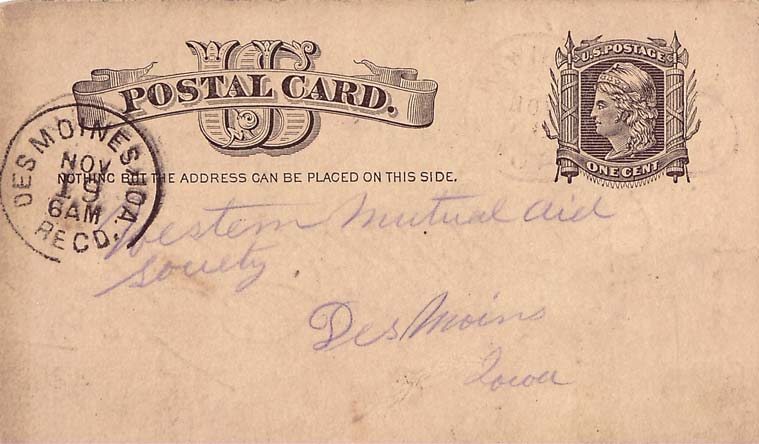 US
POSTAL CARD.
U.S. POSTAGE
ONE CENT
NOTHING BUT THE ADDRESS CAN BE PLACED ON THIS SIDE.
DES MOINES, IOA.
NOV
19
6AM
RECD.
Western Mutual Aid
Society
Des Moins
Iowa